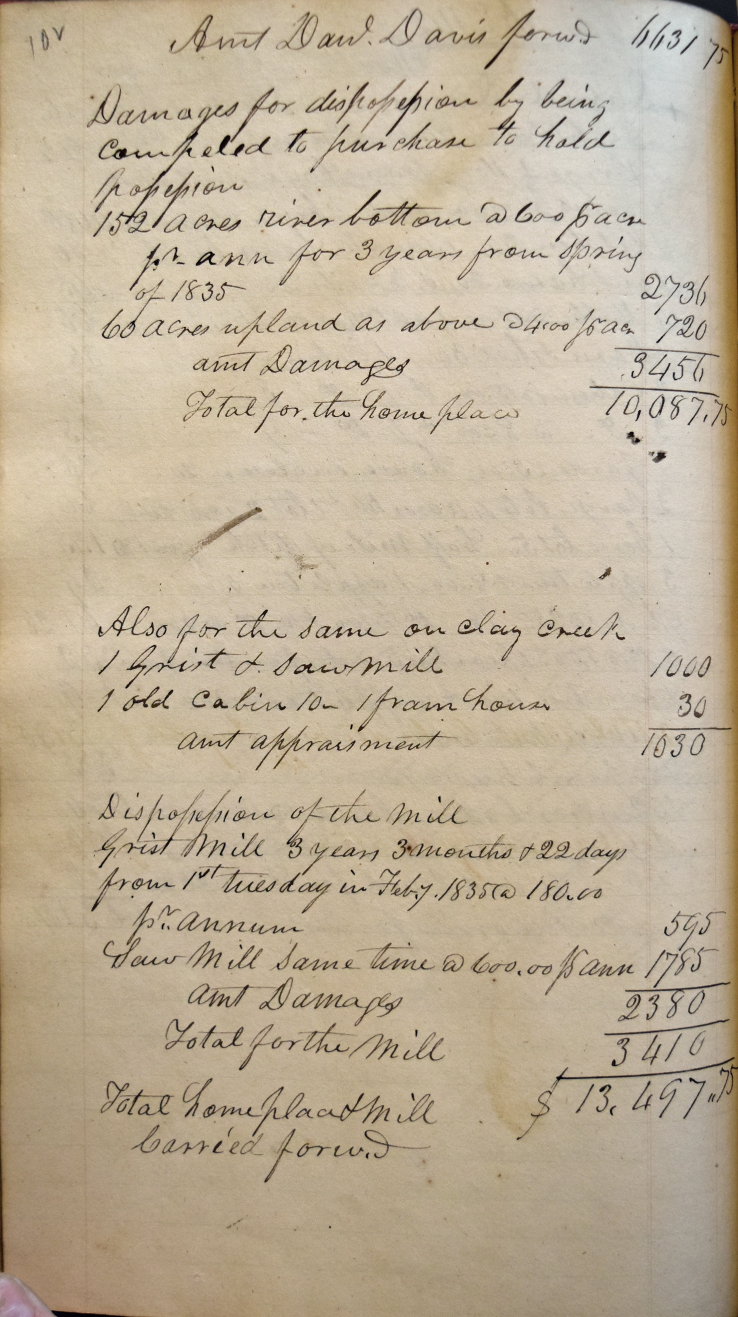 10v
Amt Dawd. Davis forwd 6631 75
Damages for dispossession by being
compeled to purchase to hold
possession
152 acres river bottom @ 600 pr acre
pr ann for 3 years from Spring
of 1835 2736
60 acres upland as above @ 4.00 pr acre 720
amt Damages 3456
Total for the home place 10,087.75
Also for the same on Clay Creek
1 Grist & Saw Mill 1000
1 old Cabin 10 - 1 fram house 30
amt appraisment 1030
Dispossession of the Mill
Grist Mill 3 years 3 months & 22 days
from 1st tuesday in Feby. 1835 @ 180.00
pr. annum 595
Saw Mill Same time @ 600.00 pr ann 1785
amt Damages 2380
Total for the Mill 3410
Total home place & Mill $ 13,497.75
Carried forwd